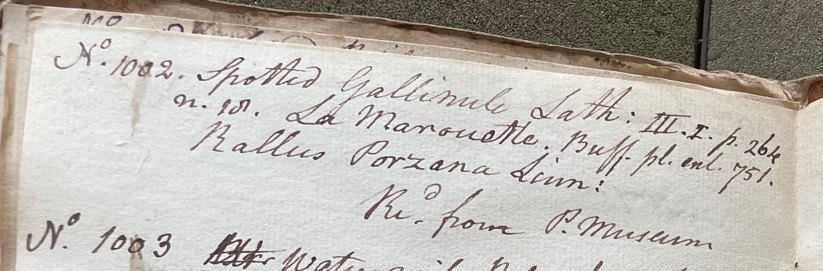 Nº. 1002. Spotted Gallinule Lath: III. I. p. 264
n. 18. La Marouette. Buff. pl. enl. 751.
Rallus Porzana Linn:
Rd. from P. Museum
Nº. 1003 Water